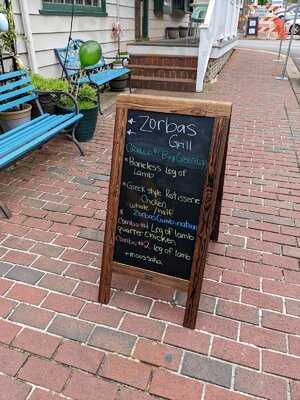 ← Zorbas
← Grill
Big Greek
* Boneless leg of
Lamb
* Greek style Rotisserie
Chicken
whole / half
* Zorbas Combo-nation
Combo #1 Leg of lamb
quarter Chicken
Combo #2 leg of lamb
+ moussaka